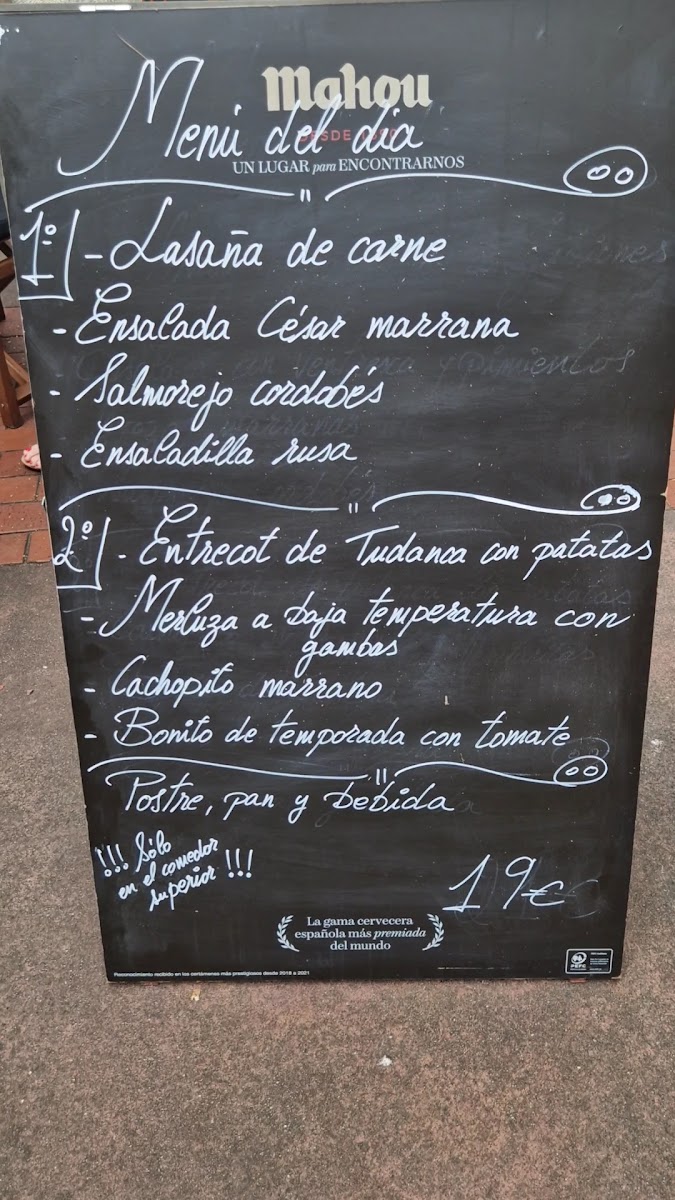 Mahou
DESDE 1890
Menú del día
UN LUGAR para ENCONTRARNOS
1º - Lasaña de carne
- Ensalada César marrana
- Salmorejo cordobés
- Ensaladilla rusa
2º - Entrecot de Tudanca con patatas
- Merluza a baja temperatura con
gambas
- Cachopito marrano
- Bonito de temporada con tomate
Postre, pan y bebida
!!! Sólo
en el comedor
superior !!!
19€
La gama cervecera
española más premiada
del mundo
Reconocimiento recibido en los certámenes más prestigiosos desde 2018 a 2021
PEFC